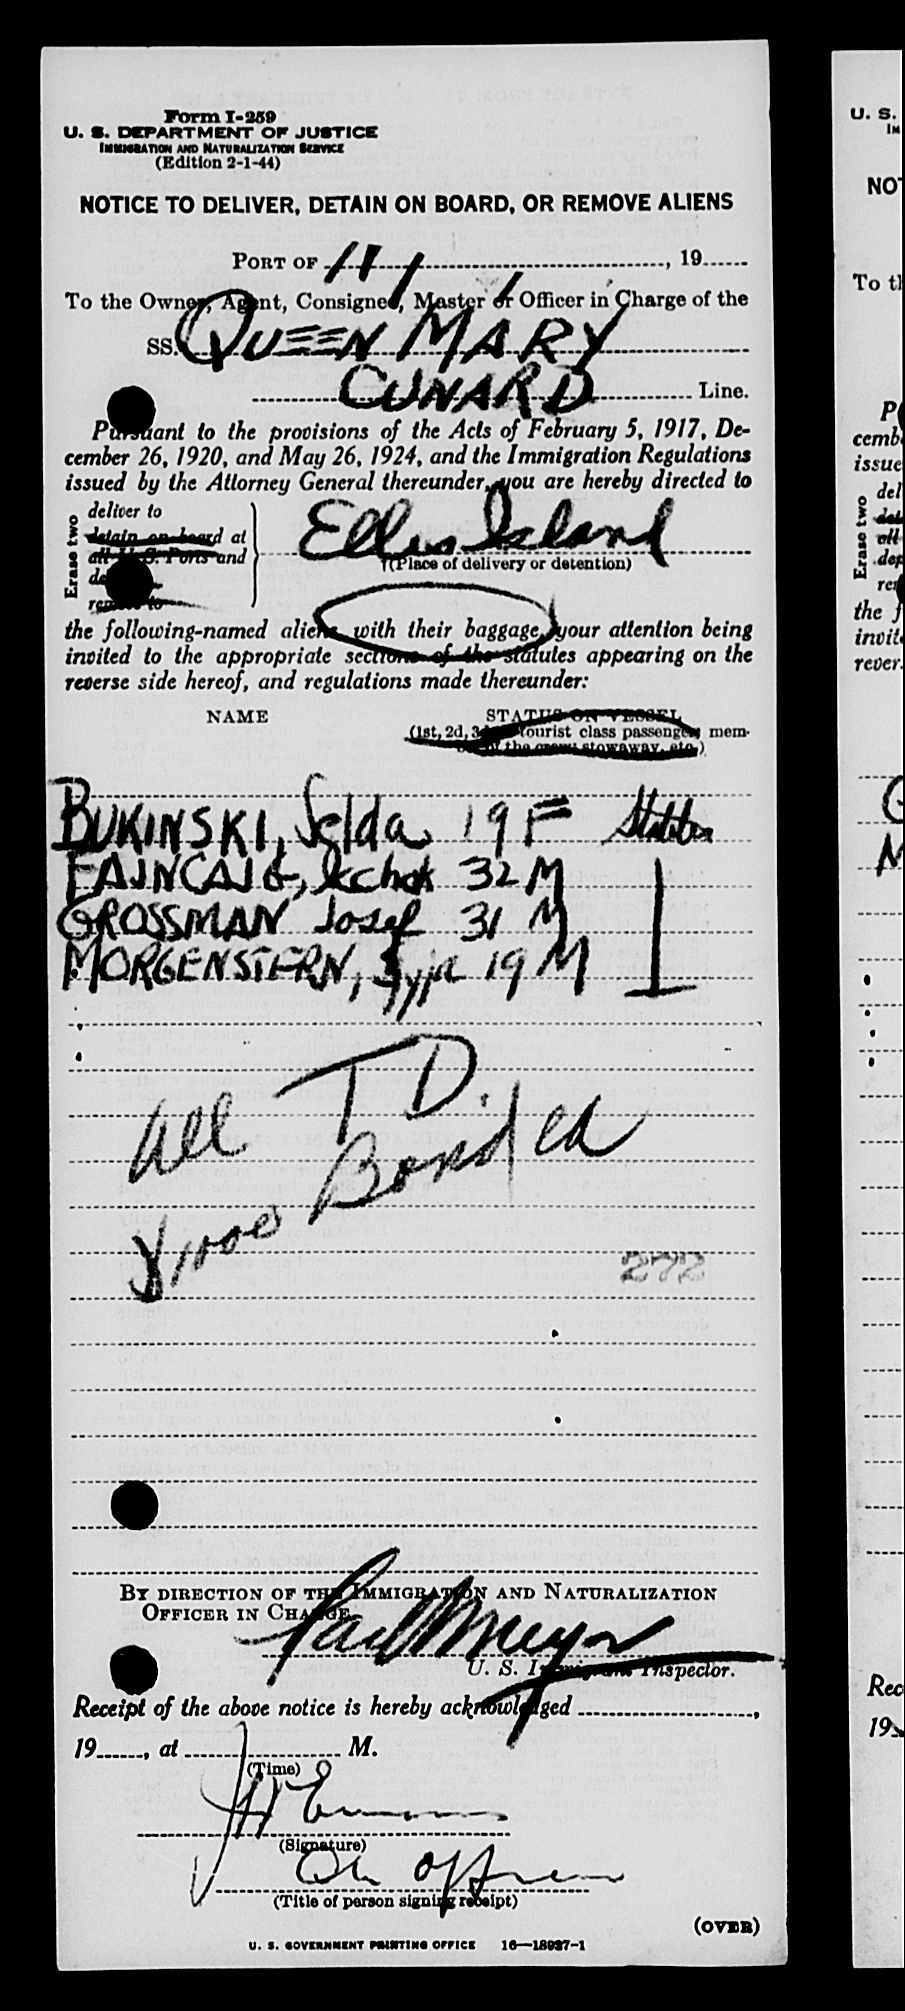 Form I-259
U. S. DEPARTMENT OF JUSTICE
IMMIGRATION AND NATURALIZATION SERVICE
(Edition 2-1-44)
NOTICE TO DELIVER, DETAIN ON BOARD, OR REMOVE ALIENS
PORT OF , 19
To the Owner, Agent, Consignee, Master or Officer in Charge of the
SS. QUEEN MARY
CUNARD Line.
Pursuant to the provisions of the Acts of February 5, 1917, De-
cember 26, 1920, and May 26, 1924, and the Immigration Regulations
issued by the Attorney General thereunder, you are hereby directed to
Erase two
deliver to
detain on board at
all U.S. Ports and
remove to
Ellis Island
(Place of delivery or detention)
the following-named aliens, with their baggage, your attention being
invited to the appropriate sections of the statutes appearing on the
reverse side hereof, and regulations made thereunder:
NAME STATUS ON VESSEL
(1st, 2d, 3d, tourist class passenger, mem-
of the crew, stowaway, etc.)
BUKINSKI, Selda 19 F
FAJNCAJG, Icchok 32 M
GROSSMAN Josef 31 M
MORGENSTERN, 19 M
All T D.
Bonded
272
BY DIRECTION OF THE IMMIGRATION AND NATURALIZATION
OFFICER IN CHARGE
U. S. Immigrant Inspector.
Receipt of the above notice is hereby acknowledged ,
19 , at M.
(Time)
(Signature)
(Title of person signing receipt)
(OVER)
U. S. GOVERNMENT PRINTING OFFICE 16—18927-1
U. S.
NOT
To th
P
cemb
issue
Erase two
del
all
dep
the f
invit
rever
G
M
Rec
19